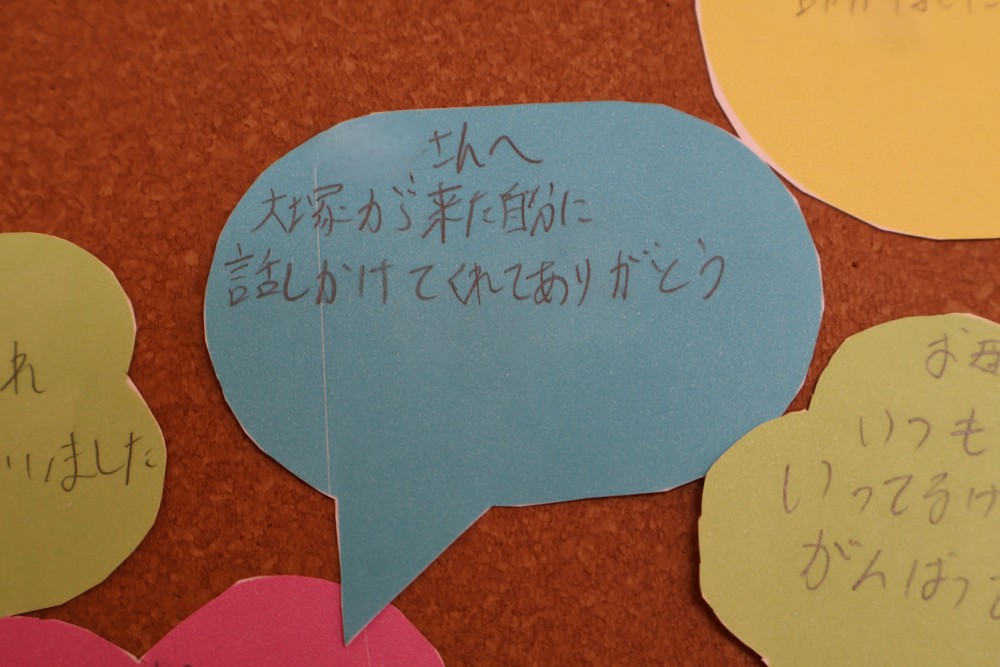 さんへ
大塚から来た自分に
話しかけてくれてありがとう
れ
いました
いつも
いってるけ
がんばって